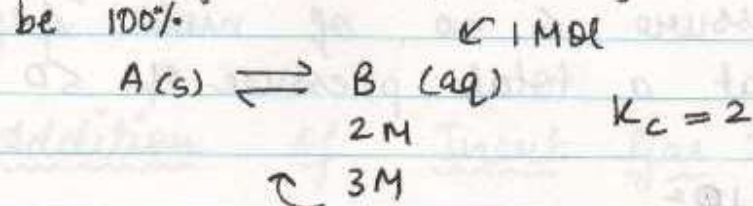 be 100%.
↙ 1 Mol
A(s) ⇌ B (aq)
2M
K_c = 2
3M